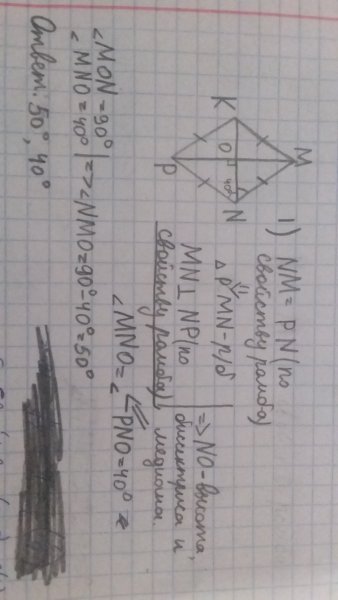 K
M
O
40°
P
N
1) NM = PN (по
свойству ромба)
△ PMN - р/б
MN ⊥ NP (по
свойству ромба)
=> NO - высота,
биссектриса и
медиана
∠MNO = ∠PNO = 40°
∠MON = 90°
∠MNO = 40° | => ∠NMO = 90° - 40° = 50°
Ответ: 50°, 40°